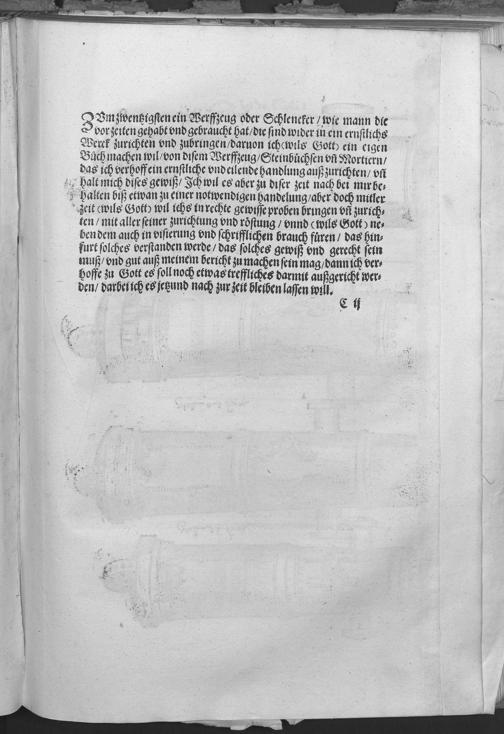 ZVm zwentzigsten ein Werffzeug oder Schlencker / wie mann die
vor zeiten gehabt vnd gebraucht hat / die sind wider in ein ernstlichs
Werck zurichten vnd zubringen / daruon ich (wils Gott) ein eigen
Bůch machen wil / von disem Werffzeug / Steinbüchsen vñ Mortiern /
das ich verhoff ein ernstliche vnd eilende handlung außzurichten / vñ
halt mich dises gewiß / Jch wil es aber zu diser zeit nach bei mir be-
halten biß etwan zu einer notwendigen handelung / aber doch mitler
zeit (wils Gott) wil ichs in rechte gewisse proben bringen vñ zurich-
ten / mit aller seiner zurichtung vnd röstung / vnnd (wils Gott) ne-
ben dem auch in visierung vnd schrifflichen brauch füren / das hin-
furt solches verstanden werde / das solches gewiß vnd gerecht sein
muß / vnd gut auß meinem bericht zu machen sein mag / dann ich ver-
hoffe zu Gott es soll noch etwas treffliches darmit außgericht wer-
den / darbei ich es jetzund nach zur zeit bleiben lassen will.
C ij